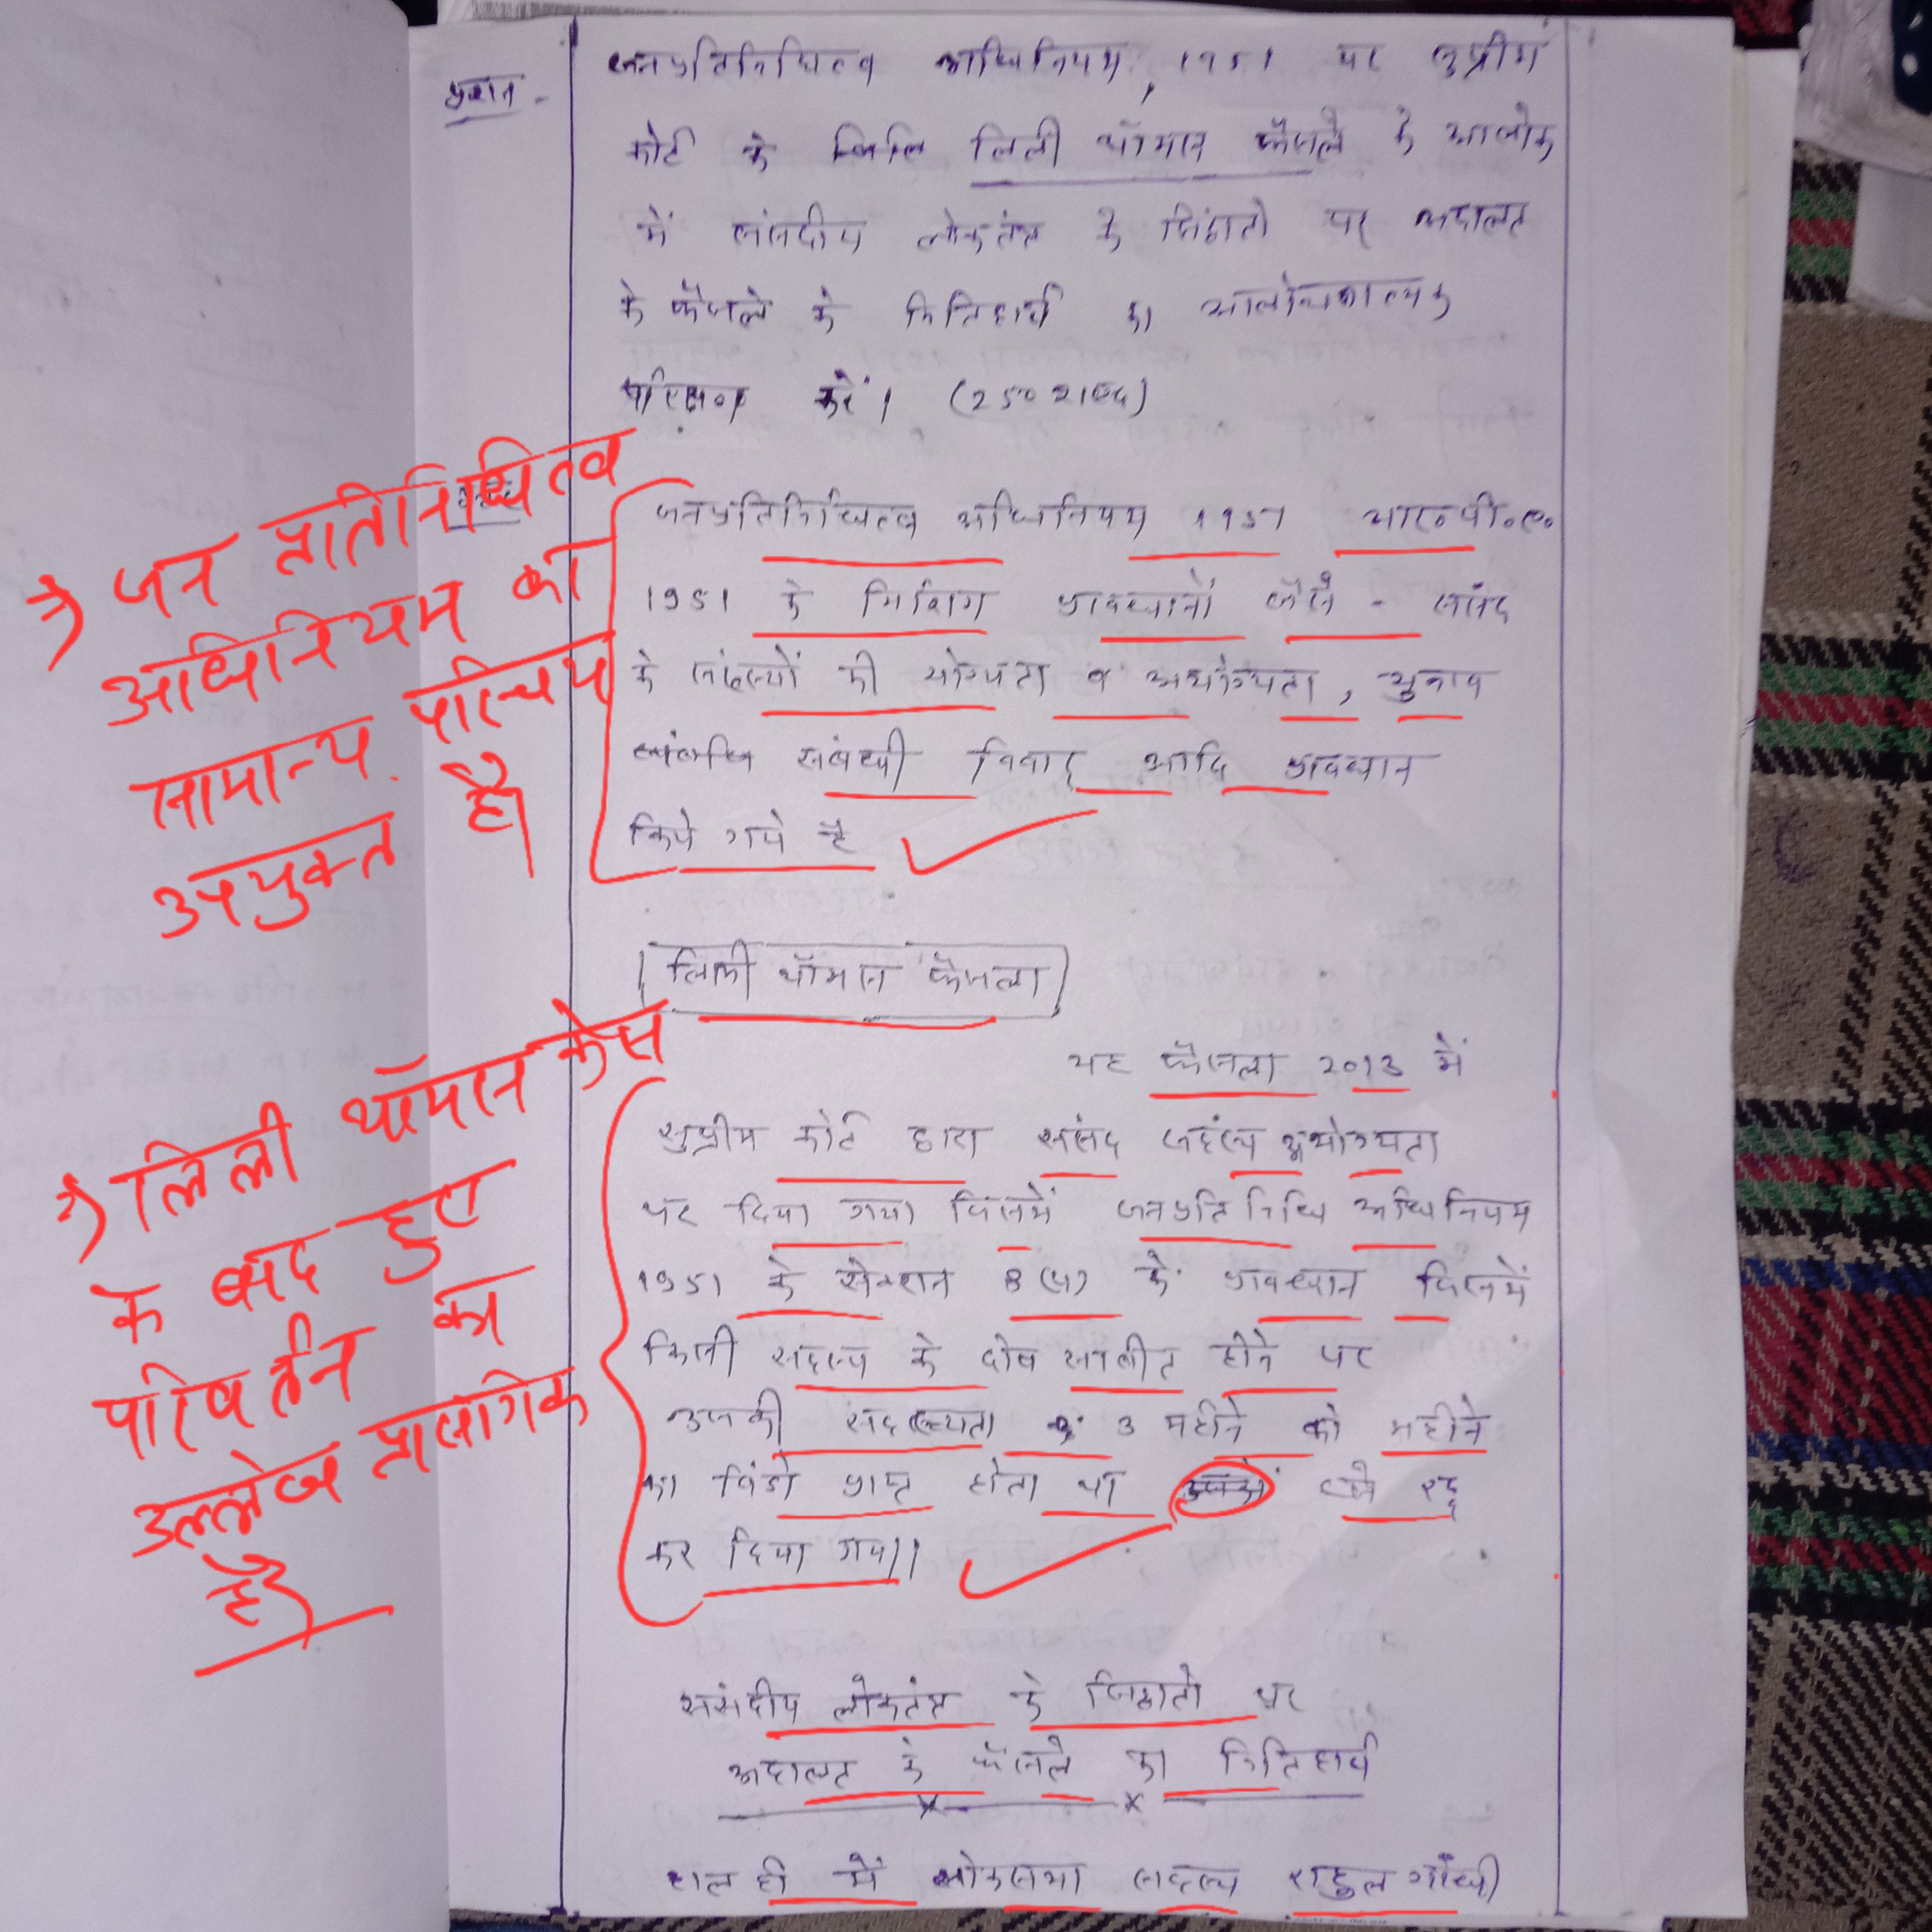 प्रश्न - जनप्रतिनिधित्व अधिनियम, 1951 पर सुप्रीम
कोर्ट के लिली थॉमस फैसले के आलोक
में संसदीय लोकतंत्र के सिद्धांतो पर अदालत
के फैसले के निहितार्थ का आलोचनात्मक
परिक्षण करें। (250 शब्द)
जनप्रतिनिधित्व अधिनियम 1951 आर०पी०ए०
1951 के विभिन्न प्रावधानों जैसे - संसद
के सदस्यों की योग्यता व अयोग्यता, चुनाव
संबंधी विवाद आदि प्रावधान
किये गये है
→ जन प्रतिनिधित्व
अधिनियम का
सामान्य परिचय
उपयुक्त है।
लिली थॉमस फैसला
यह फैसला 2013 में
सुप्रीम कोर्ट द्वारा संसद सदस्य अयोग्यता
पर दिया गया जिसमें जनप्रतिनिधि अधिनियम
1951 के सेक्शन 8(4) के प्रावधान जिसमें
किसी सदस्य के दोष साबीत होने पर
उसकी सदस्यता 3 महीने को महीने
का विंडो प्राप्त होता था उसे रद्द
कर दिया गया।
→ लिली थॉमस केस
के बाद हुए
परिवर्तन का
उल्लेख प्रासंगिक
है।
संसदीय लोकतंत्र के सिद्धातो पर
अदालत के फैसले का निहितार्थ
हाल ही में लोकसभा सदस्य राहुल गाँधी